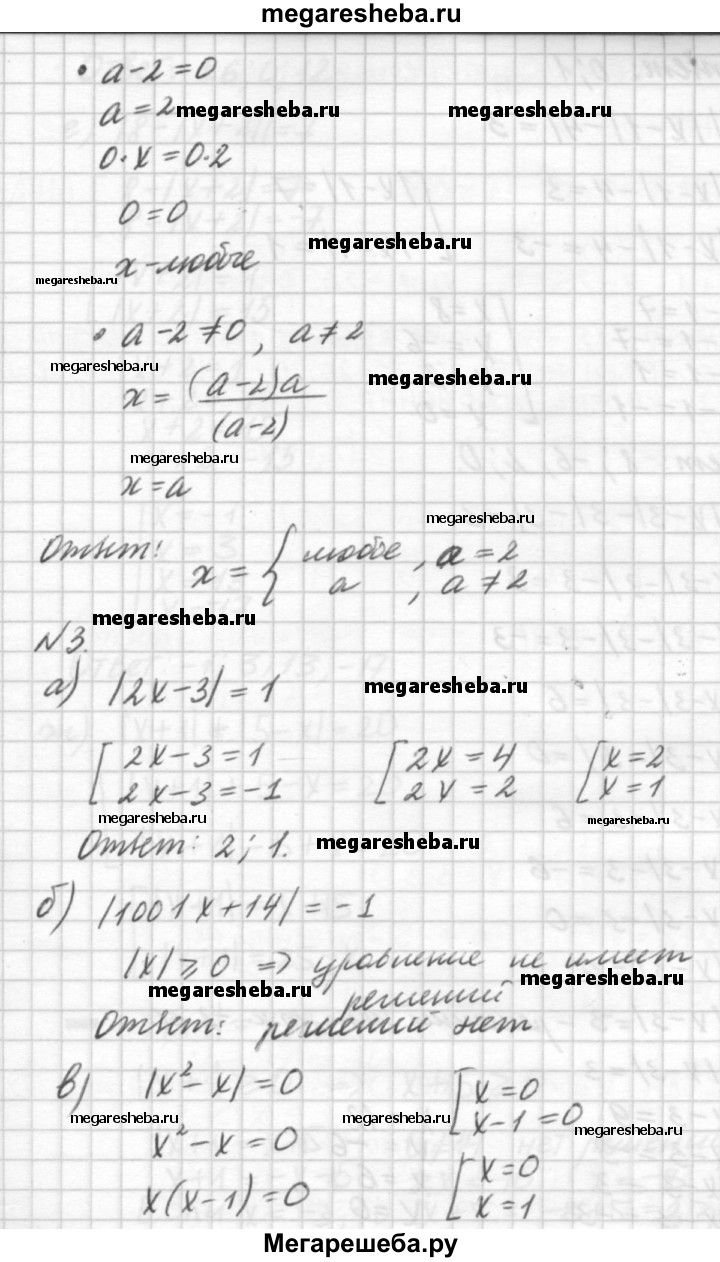 megaresheba.ru
• a-2=0
a=2 megaresheba.ru megaresheba.ru
0·x=0·2
0=0
megaresheba.ru
x-любое
megaresheba.ru
• a-2≠0, a≠2
megaresheba.ru
x = (a-2)a / (a-2) megaresheba.ru
megaresheba.ru
x=a
megaresheba.ru
Ответ: x = { любое, a=2
a, a≠2
megaresheba.ru
№3.
а) |2x-3|=1 megaresheba.ru
[ 2x-3=1 [ 2x=4 [ x=2
2x-3=-1 2x=2 x=1
megaresheba.ru megaresheba.ru
Ответ: 2; 1. megaresheba.ru
б) |1001x+14|=-1
|x|⩾0 => уравнение не имеет
megaresheba.ru решений megaresheba.ru
Ответ: решений нет
в) |x²-x|=0 [ x=0
x-1=0
megaresheba.ru megaresheba.ru megaresheba.ru
x²-x=0
x(x-1)=0 [ x=0
x=1
Мегарешеба.ру